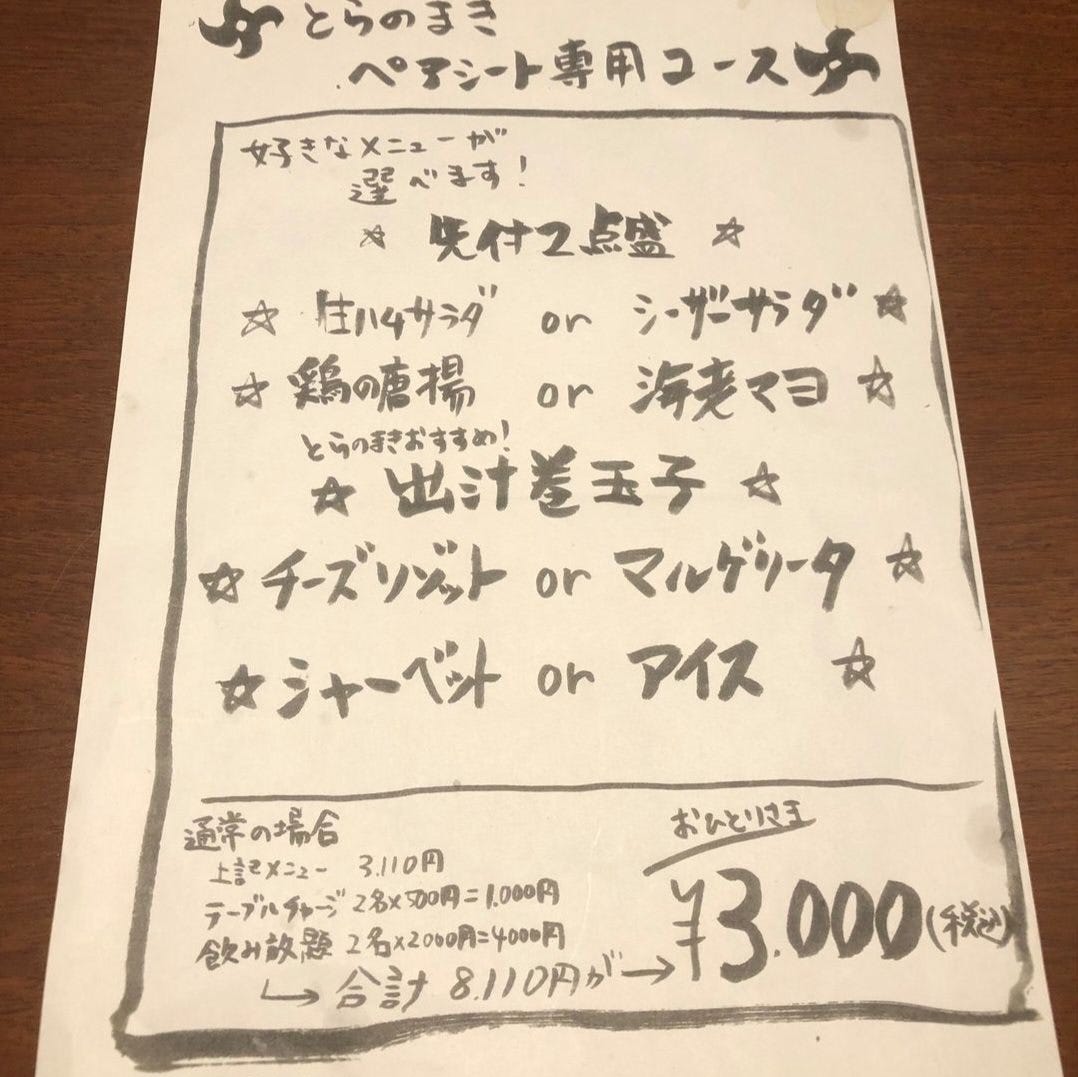 とらのまき
ペアシート専用コース
好きなメニューが
選べます！
☆ 先付2点盛 ☆
☆ 生ハムサラダ or シーザーサラダ ☆
☆ 鶏の唐揚 or 海老マヨ ☆
とらのまきおすすめ！
☆ 出汁巻玉子 ☆
☆ チーズリゾット or マルゲリータ ☆
☆ シャーベット or アイス ☆
通常の場合
上記メニュー 3.110円
テーブルチャージ 2名×500円=1.000円
飲み放題 2名×2000円=4000円
↳ 合計 8.110円が→
おひとりさま
¥3.000(税込)